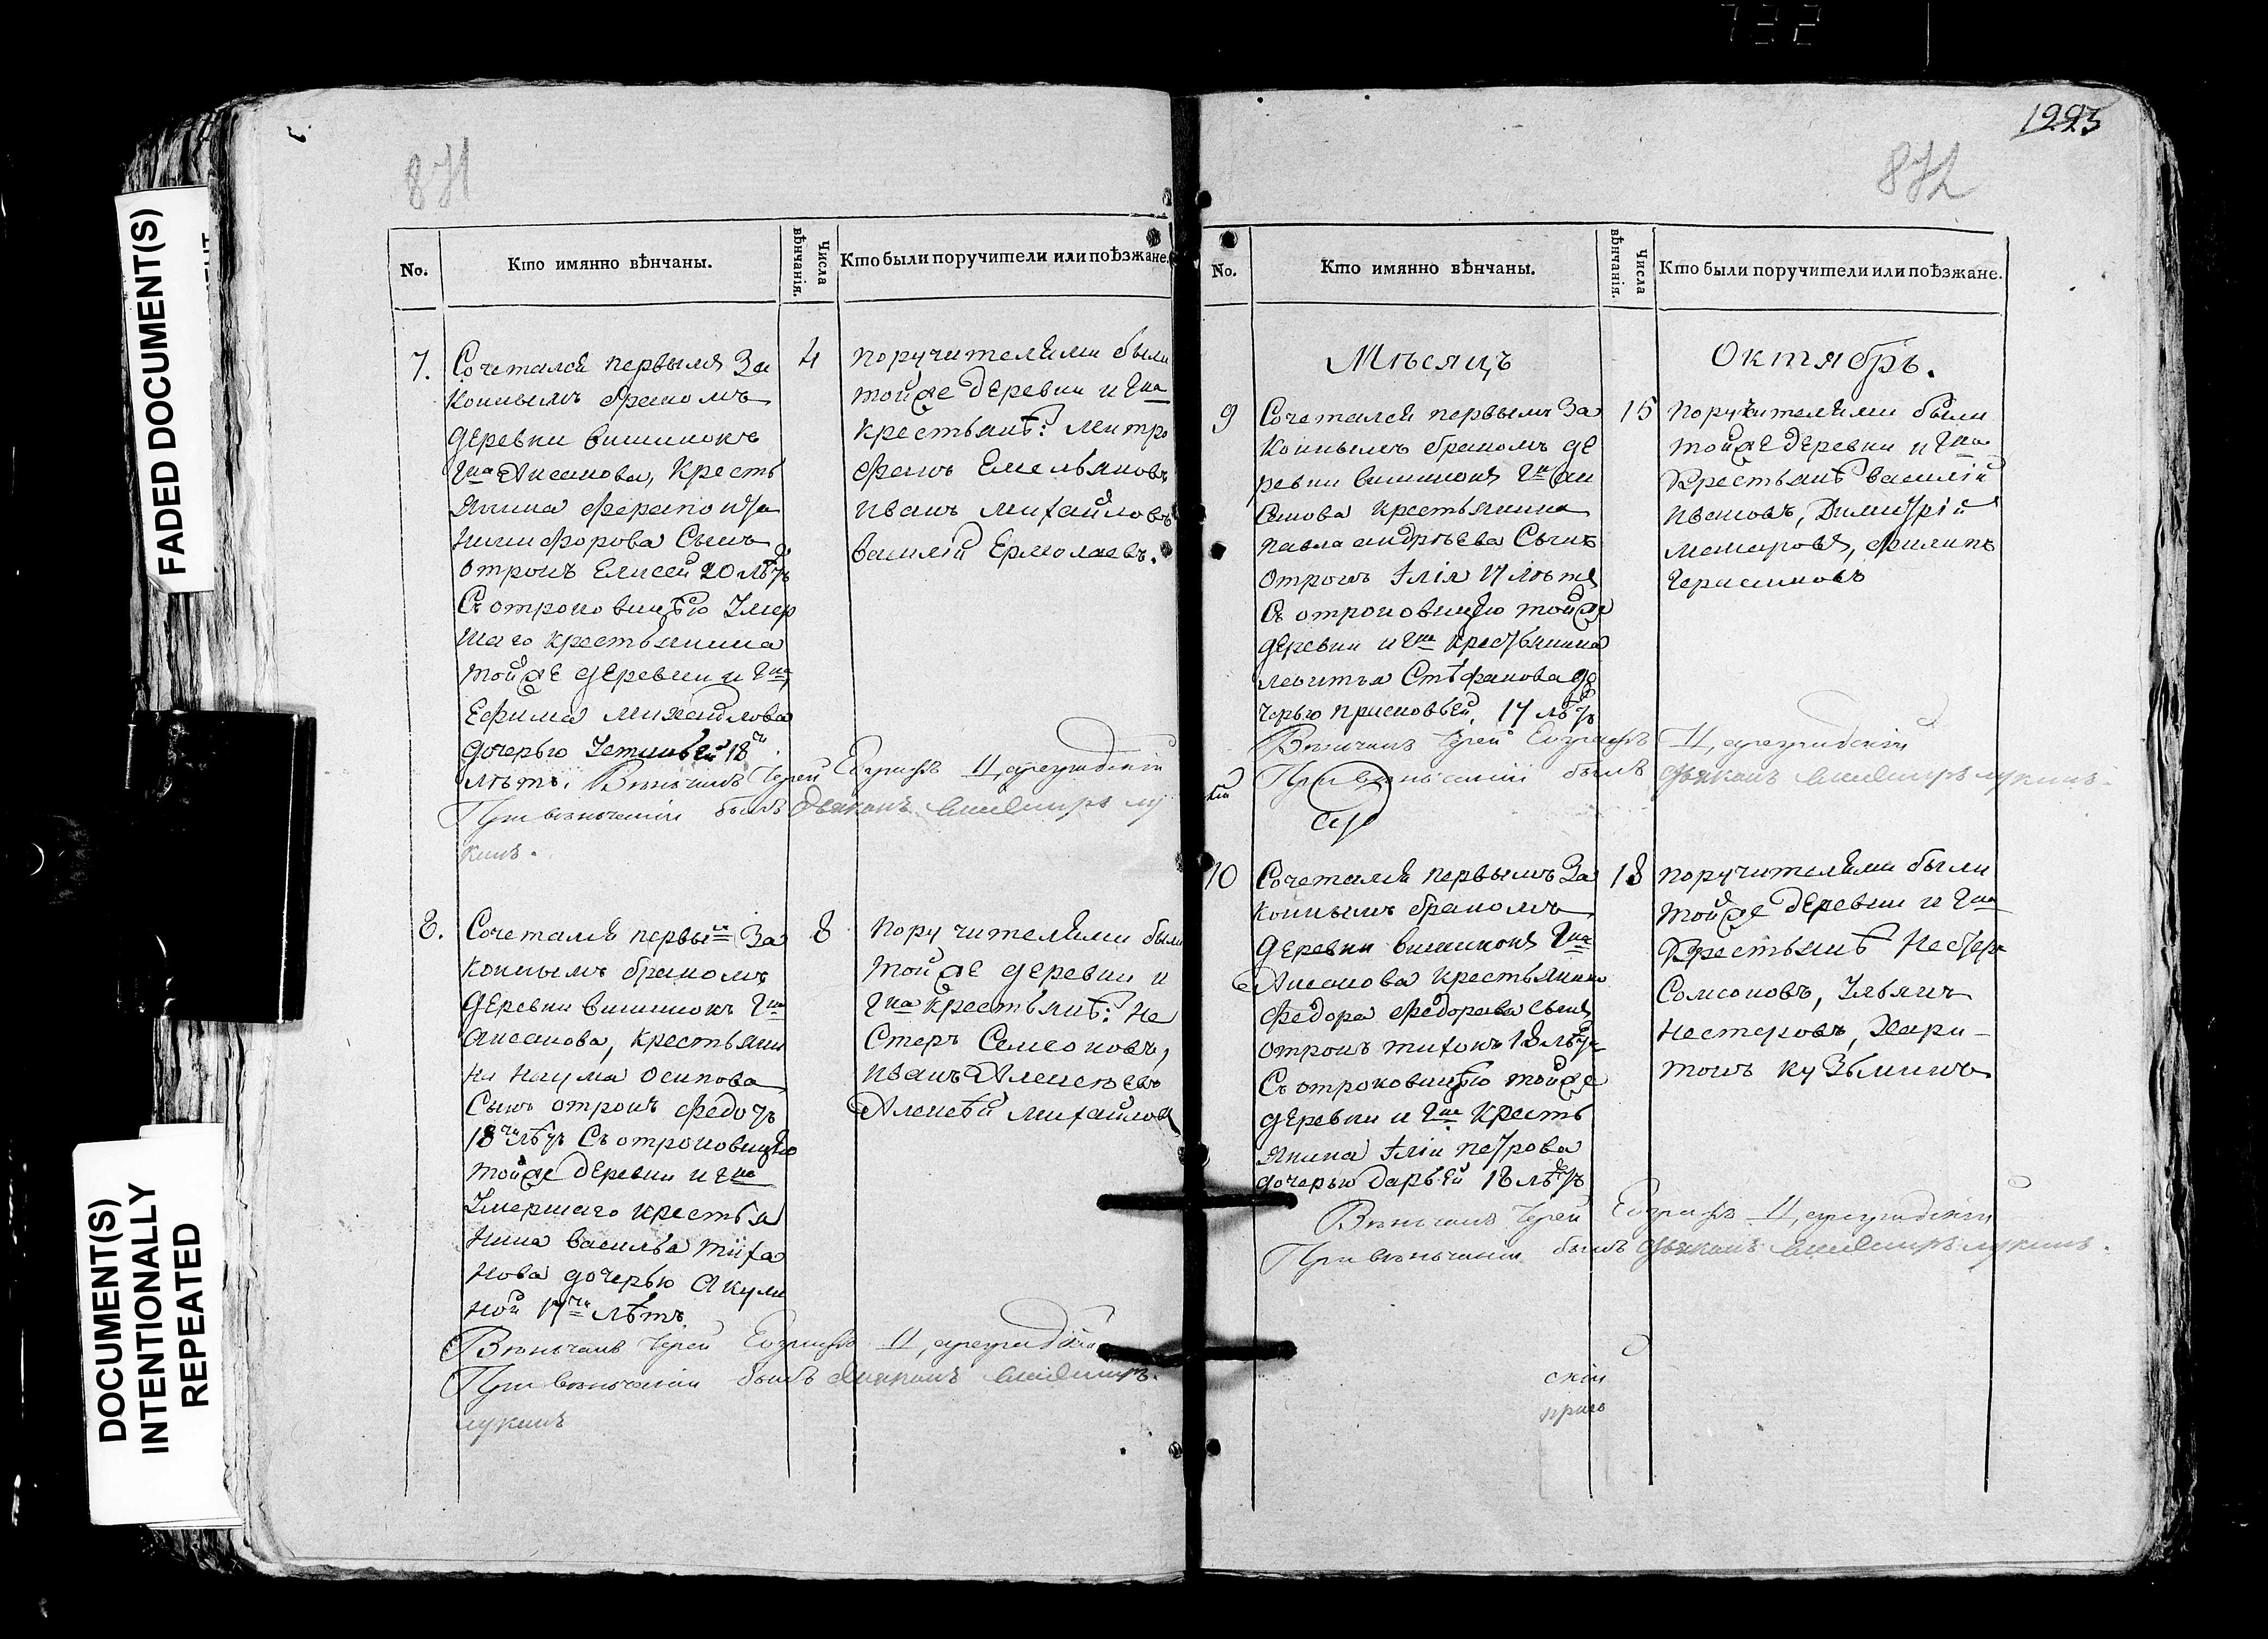 1223
871
872
FADED DOCUMENT(S)
DOCUMENT(S)
INTENTIONALLY
REPEATED
No.
Кто имянно вѣнчаны.
Числа вѣнчанія.
Кто были поручители или поѣзжане.
7.
Сочетался первымъ За
коннымъ бракомъ
деревни вишинокъ
Гна Аксакова, Кресть
янина
Никифорова Сынъ
отрокъ Елисей 20 лѣтъ
Съ отроковицею Умер
шаго крестьянина
тойже деревни и Гна
Ефима михайлова
дочерью Устиньей 18
лѣтъ. Вѣнчалъ Іерей
При вѣнчаніи былъ дьяконъ
кинъ.
4
поручителями были
тойже деревни и Гна
крестьянѣ: митро
фанъ Емельяновъ
иванъ михайловъ
василій Ермолаевъ.
8.
Сочетался первым За
коннымъ бракомъ
деревни вишинокъ Гна
аксакова, крестьяни
на наума осипова
Сынъ отрокъ федотъ
18 лѣтъ Съ отроковицею
тойже деревни и Гна
Умершаго крестья
нина василья тиха
нова дочерью Акули
ной 17 лѣтъ.
Вѣнчалъ Іерей
При вѣнчаніи былъ дьяконъ
лукинъ
8
Поручителями были
тойже деревни и
Гна крестьянѣ: Не
стеръ Самсоновъ,
иванъ Алексѣевъ
Алексѣй михайлов
No.
Кто имянно вѣнчаны.
Числа вѣнчанія.
Кто были поручители или поѣзжане.
Мѣсяцъ Октябрь.
9
Сочетался первымъ За
коннымъ бракомъ де
ревни вишинокъ Гна Ак
сакова крестьянина
павла андрѣева Сынъ
отрокъ Илія 17 лѣтъ
Съ отроковицею тойже
деревни и Гна крестьянина
леонтья Стефанова до
черью прасковьей, 17 лѣтъ
Вѣнчалъ Іерей
При вѣнчаніи былъ дьяконъ лукинъ.
15
Поручителями были
тойже деревни и Гна
Крестьянѣ василій
ивановъ, Димитрій
макаровъ, филипъ
Герасимовъ
10
Сочетался первымъ За
коннымъ бракомъ
деревни вишинокъ Гна
Аксакова крестьянина
федора федорова сынъ
отрокъ тихонъ 18 лѣтъ
Съ отроковицею тойже
деревни и Гна Кресть
янина Иліи петрова
дочерью дарьей 18 лѣтъ
Вѣнчалъ Іерей
При вѣнчаніи былъ дьяконъ лукинъ.
18
поручителями были
тойже деревни и Гна
Крестьянѣ Нестеръ
Самсоновъ, Ульянъ
нестеровъ, Хари-
тонъ кузьминъ
скій